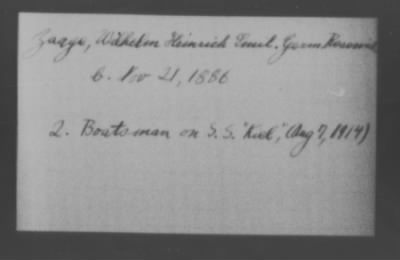 Zaage, Wilhelm Heinrich Emil. Germ
b. Nov 21, 1886
2. Boatsman on S.S. "Kiel", (Aug 7, 1914)